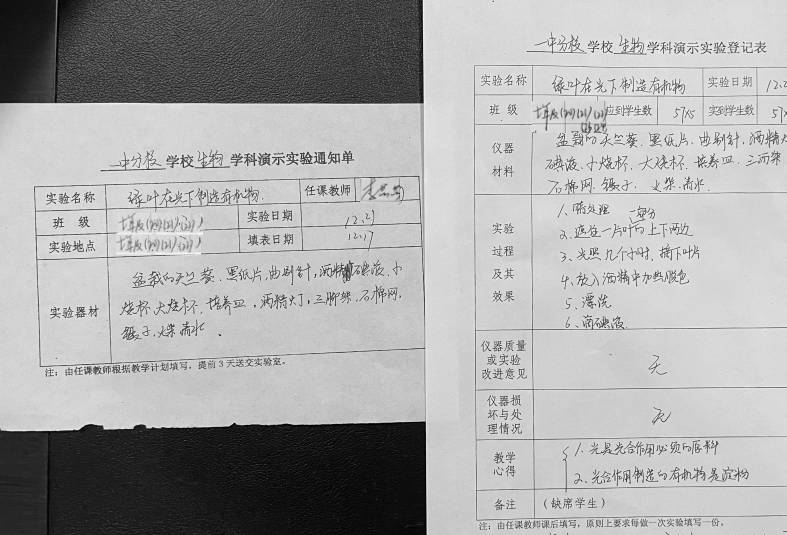 一中分校 学校 生物 学科演示实验通知单
实验名称 绿叶在光下制造有机物. 任课教师
班 级 七年级 实验日期 12.21
实验地点 七年级 填表日期 12.17
实验器材 盆栽的天竺葵、黑纸片、曲别针，酒精 碘液、小
烧杯、大烧杯、培养皿，酒精灯，三脚架、石棉网、
镊子、火柴 清水．
注：由任课教师根据教学计划填写，提前 3 天送交实验室。
一中分校 学校 生物 学科演示实验登记表
实验名称 绿叶在光下制造有机物 实验日期 12.2
班 级 七年级 应到学生数 57×5 实到学生数 57×
仪器
材料
盆栽的天竺葵、黑纸片、曲别针，酒精
碘液、小烧杯、大烧杯、培养皿、三脚架
石棉网、镊子、火柴、清水、
实验
过程
及其
效果
1、暗处理
2、遮住一片叶的一部分上下两边
3、光照几个小时，摘下叶片
4、放入酒精中加热脱色
5、漂洗
6、滴碘液
仪器质量
或实验
改进意见
无
仪器损
坏与处
理情况
无
教学
心得
1、光是光合作用必须的原料
2、光合作用制造的有机物是淀粉
备注 （缺席学生）
注：由任课教师课后填写，原则上要求每做一次实验填写一份。